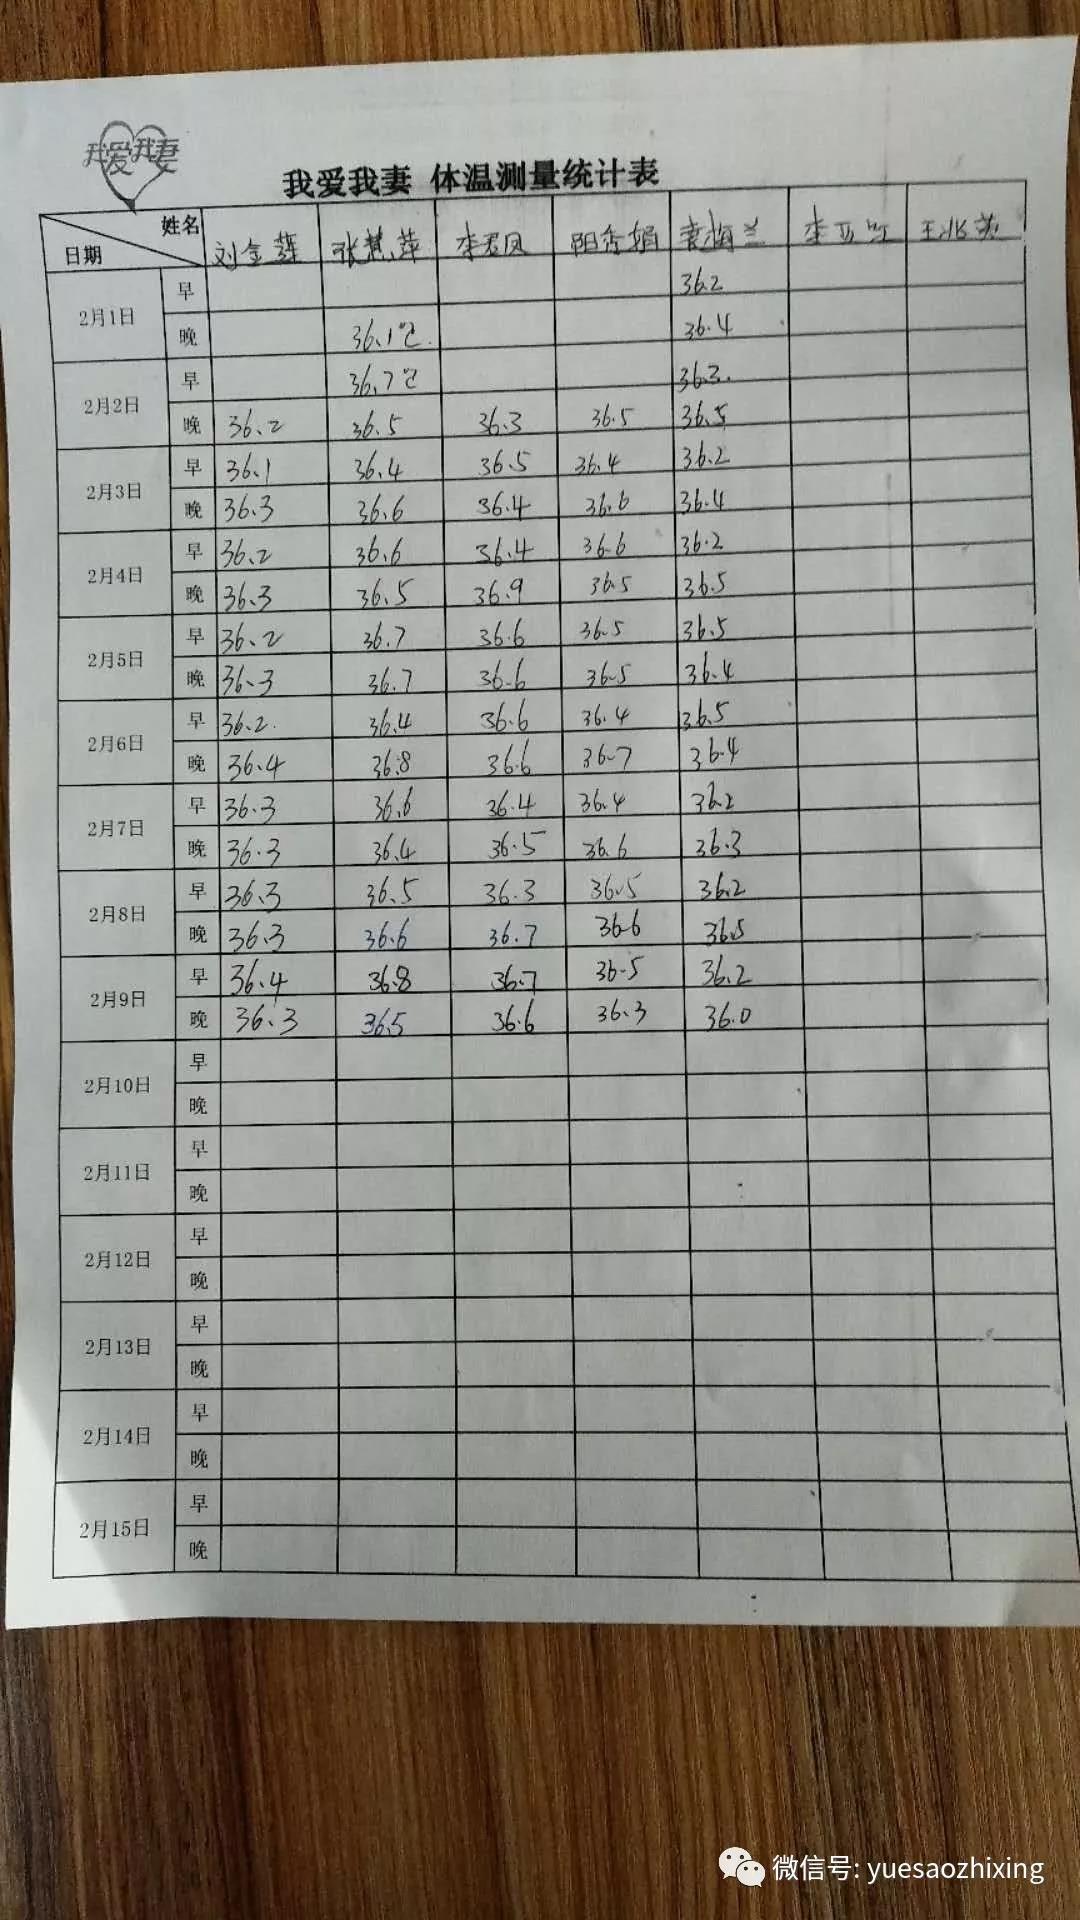 我爱我妻
我爱我妻 体温测量统计表
姓名 日期 刘金莲 张慧萍 李君凤 阳香娟 袁梅兰 李亚 王兆英
2月1日 早 36.2
晚 36.1℃. 36.4
2月2日 早 36.7℃ 36.3.
晚 36.2 36.5 36.3 36.5 36.5
2月3日 早 36.1 36.4 36.5 36.4 36.2
晚 36.3 36.6 36.4 36.6 36.4
2月4日 早 36.2 36.6 36.4 36.6 36.2
晚 36.3 36.5 36.9 36.5 36.5
2月5日 早 36.2 36.7 36.6 36.5 36.5
晚 36.3 36.7 36.6 36.5 36.4
2月6日 早 36.2. 36.4 36.6 36.4 36.5
晚 36.4 36.8 36.6 36.7 36.4
2月7日 早 36.3 36.6 36.4 36.4 36.2
晚 36.3 36.4 36.5 36.6 36.3
2月8日 早 36.3 36.5 36.3 36.5 36.2
晚 36.3 36.6 36.7 36.6 36.5
2月9日 早 36.4 36.8 36.7 36.5 36.2
晚 36.3 36.5 36.6 36.3 36.0
2月10日 早
晚
2月11日 早
晚
2月12日 早
晚
2月13日 早
晚
2月14日 早
晚
2月15日 早
晚
微信号: yuesaozhixing